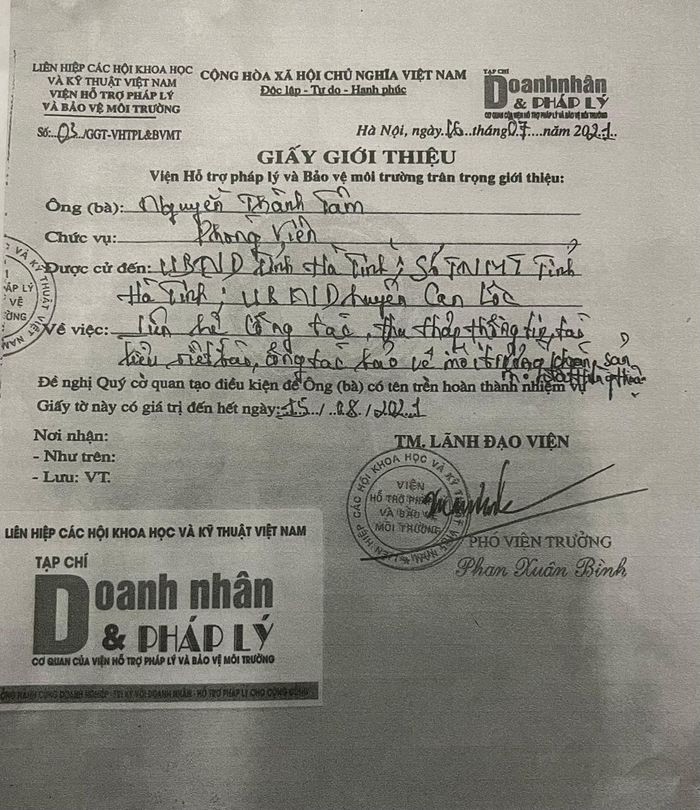 LIÊN HIỆP CÁC HỘI KHOA HỌC
VÀ KỸ THUẬT VIỆT NAM
VIỆN HỖ TRỢ PHÁP LÝ
VÀ BẢO VỆ MÔI TRƯỜNG
CỘNG HÒA XÃ HỘI CHỦ NGHĨA VIỆT NAM
Độc lập - Tự do - Hạnh phúc
TẠP CHÍ
Doanh nhân
& PHÁP LÝ
CƠ QUAN CỦA VIỆN HỖ TRỢ PHÁP LÝ VÀ BẢO VỆ MÔI TRƯỜNG
Số:...03../GGT-VHTPL&BVMT
Hà Nội, ngày.16..tháng.07....năm 2021..
GIẤY GIỚI THIỆU
Viện Hỗ trợ pháp lý và Bảo vệ môi trường trân trọng giới thiệu:
Ông (bà): Nguyễn Thành Tâm
Chức vụ: Phóng viên
Được cử đến: UBND tỉnh Hà Tĩnh; Sở TNMT Tỉnh
Hà Tĩnh; UBND huyện Can Lộc
Về việc: Liên hệ công tác, thu thập thông tin, tài
liệu viết báo, công tác bảo vệ môi trường, khoáng sản
Đề nghị Quý cơ quan tạo điều kiện để Ông (bà) có tên trên hoàn thành nhiệm vụ
Giấy tờ này có giá trị đến hết ngày: 15../..08../2021
Nơi nhận:
- Như trên:
- Lưu: VT.
TM. LÃNH ĐẠO VIỆN
LIÊN HIỆP CÁC HỘI KHOA HỌC VÀ KỸ THUẬT VIỆT NAM
VIỆN
HỖ TRỢ PHÁP LÝ
VÀ BẢO VỆ
MÔI TRƯỜNG
PHÓ VIỆN TRƯỞNG
Phan Xuân Bình
LIÊN HIỆP CÁC HỘI KHOA HỌC VÀ KỸ THUẬT VIỆT NAM
TẠP CHÍ
Doanh nhân
& PHÁP LÝ
CƠ QUAN CỦA VIỆN HỖ TRỢ PHÁP LÝ VÀ BẢO VỆ MÔI TRƯỜNG